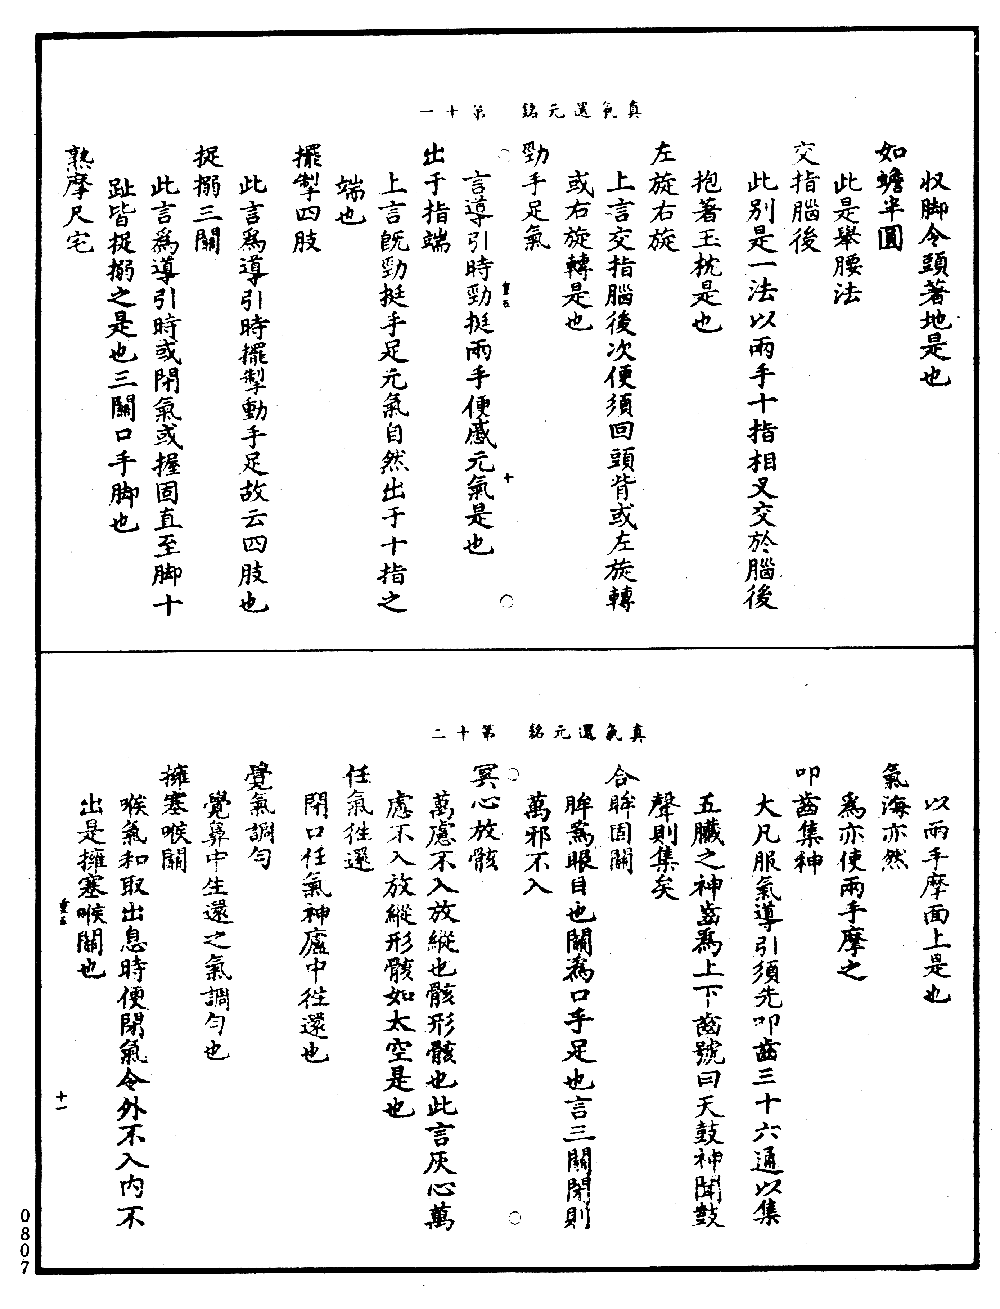 真氣還元銘　第十一
収脚令頭著地是也
如蟾半圓
此是舉腰法
交指腦後
此別是一法以兩手十指相叉交於腦後
抱著玉枕是也
左旋右旋
上言交指腦後次便須回頭背或左旋轉
或右旋轉是也
勁手足氣
言導引時勁挺兩手便感元氣是也
出于指端
上言既勁挺手足元氣自然出于十指之
端也
擺掣四肢
此言為導引時擺掣動手足故云四肢也
捉搦三關
此言為導引時或閉氣或握固直至脚十
趾皆捉搦之是也三關口手脚也
熟摩尺宅
真氣還元銘　第十二
以兩手摩面上是也
氣海亦然
為亦使兩手摩之
叩齒集神
大凡服氣導引須先叩齒三十六通以集
五臟之神齒為上下齒號曰天鼓神聞鼓
聲則集矣
合眸固關
眸為眼目也關為口手足也言三關閉則
萬邪不入
冥心放骸
萬慮不入放縱也骸形骸也此言灰心萬
慮不入放縱形骸如太空是也
任氣徃還
閉口任氣神廬中徃還也
覺氣調勻
覺鼻中生還之氣調勻也
擁塞喉關
喉氣和取出息時便閉氣令外不入內不
出是擁塞喉關也
十
十一
0807